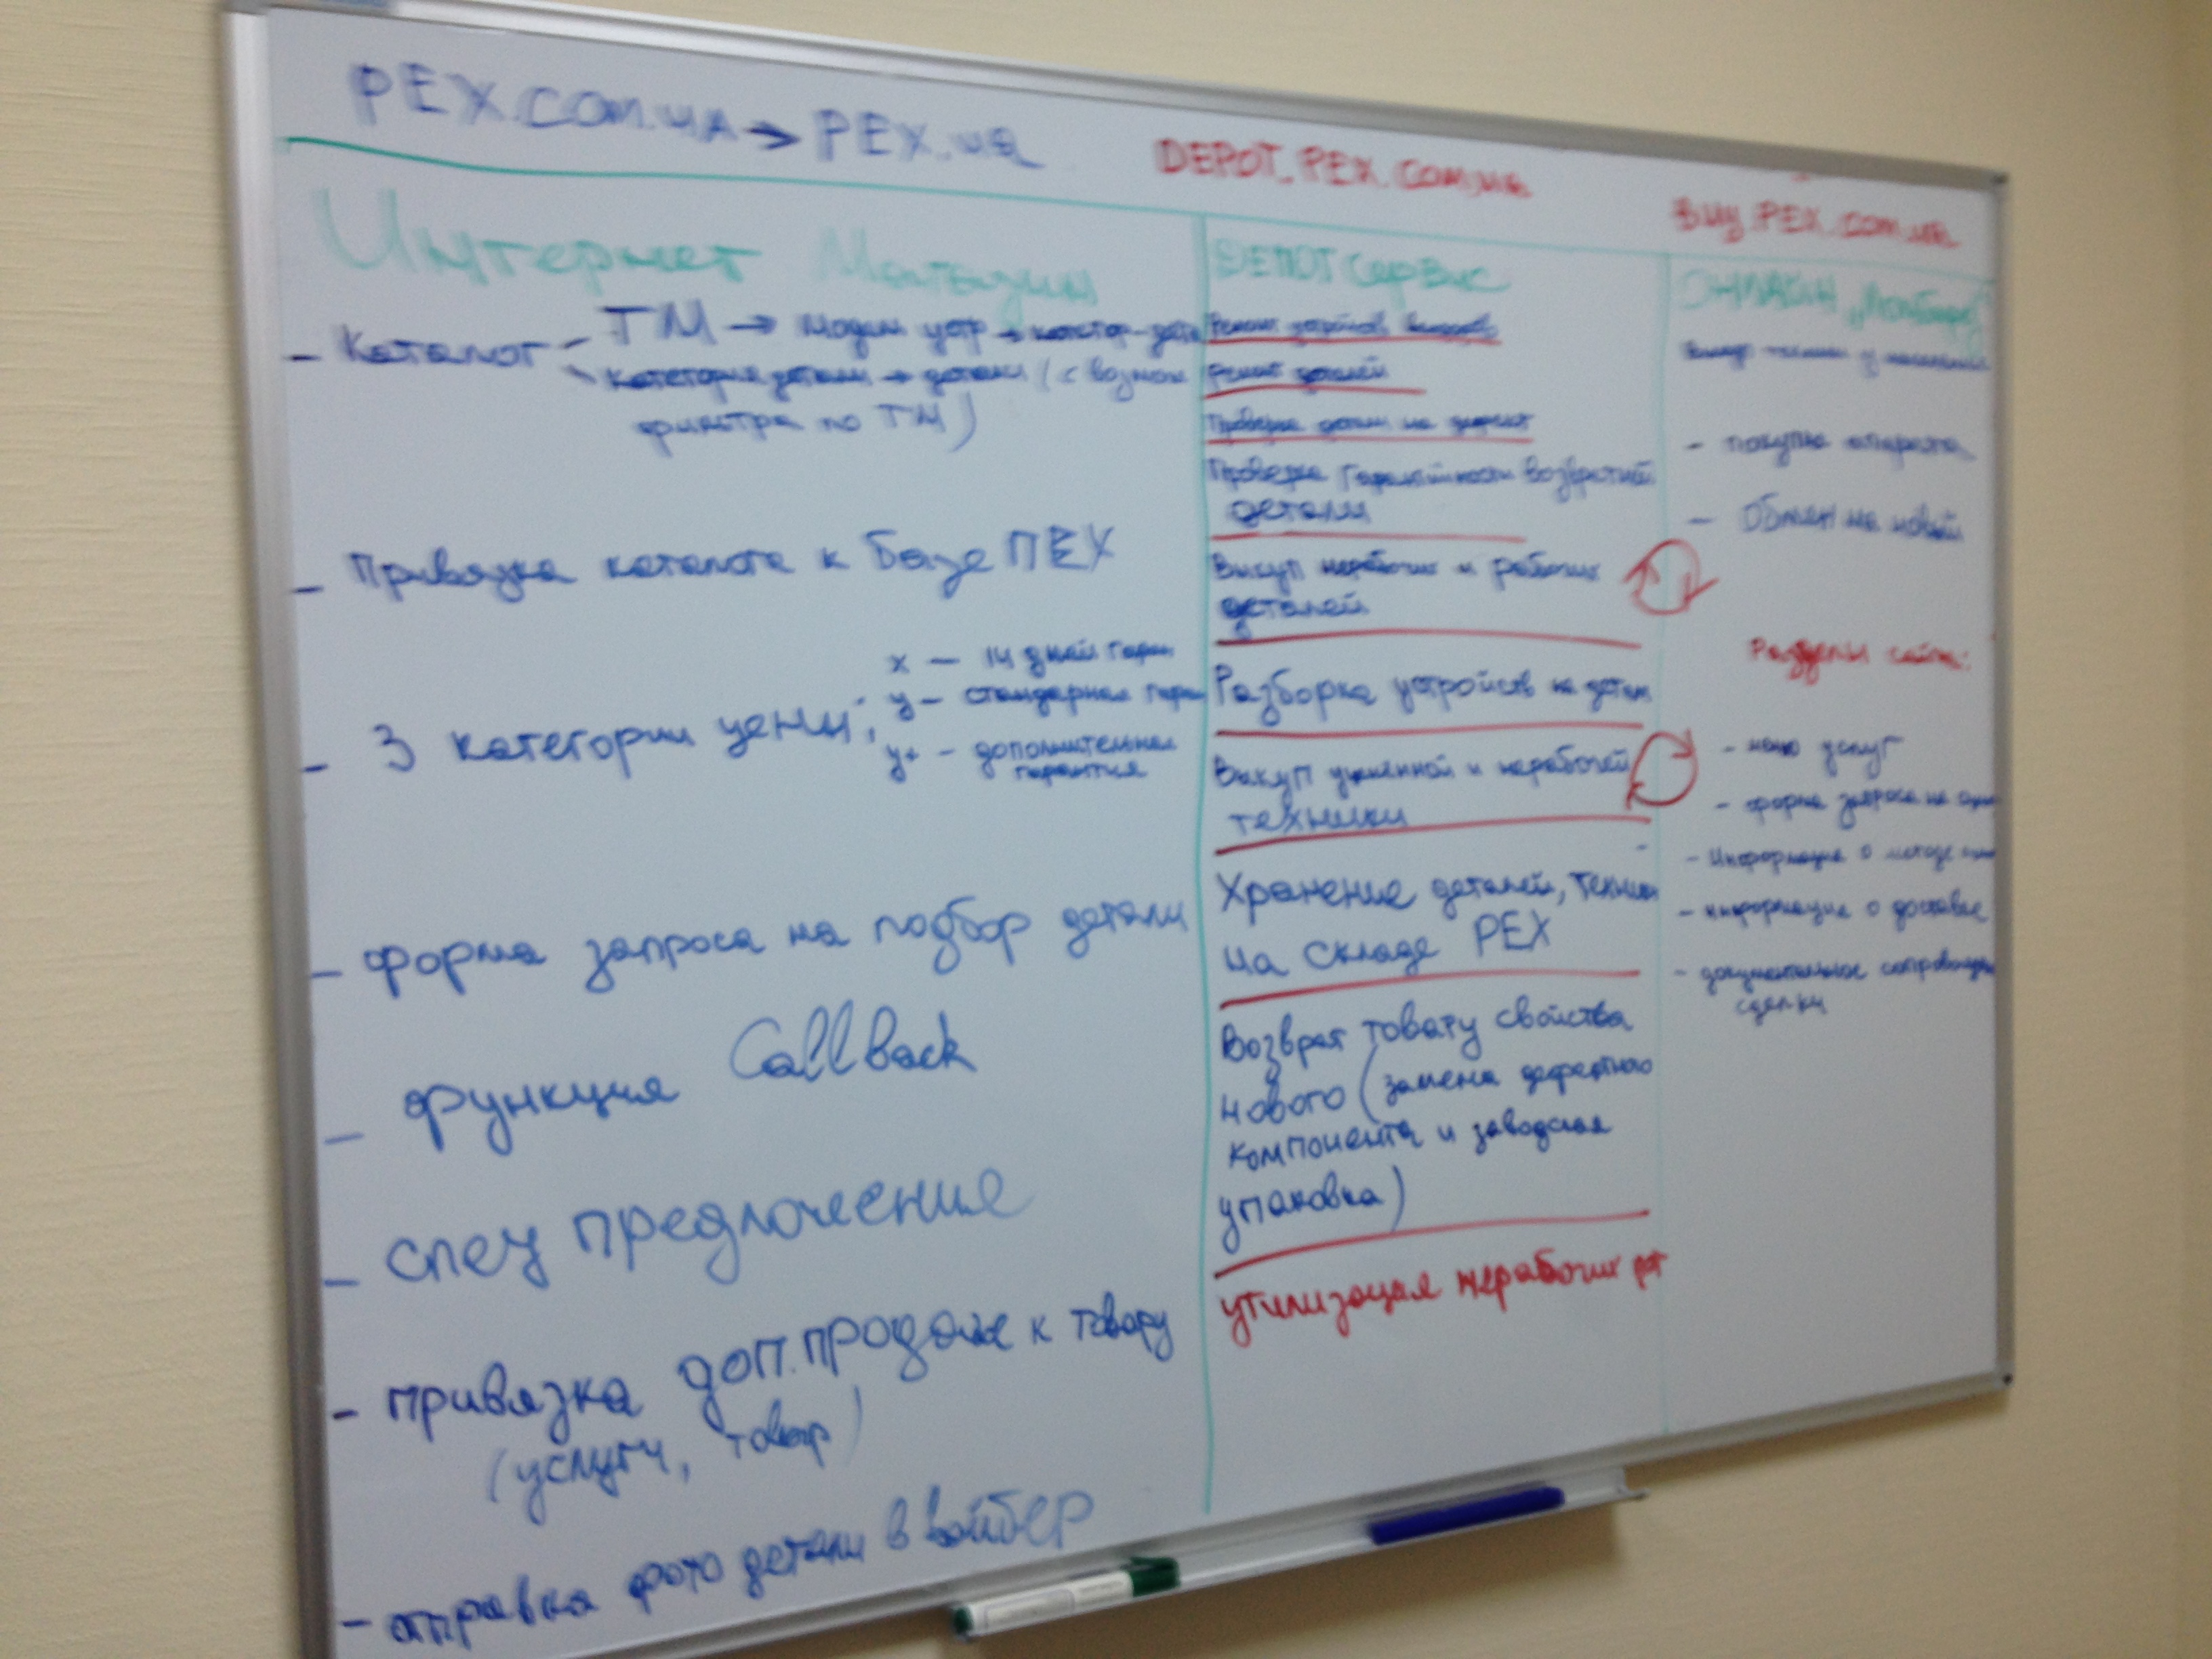 PEX.com.ua → PEX.ua
DEPOT.PEX.com.ua
BUY.PEX.com.ua
Интернет Магазин
- Каталог - ТМ → модель устр →
категория детали → детали (с возмож
фильтра по ТМ)
- Привязка каталога к базе ПЕХ
- 3 категории цены:
x — 14 дней гаран
y — стандарная гаран
y+ - дополнительная
гарантия
- форма запроса на подбор детали
- функция Callback
- спец предложения
- привязка доп.продаж к товару
(услуги, товар)
- отправка фото детали в вайбер
ДЕПОТ Сервис
Ремонт
Ремонт деталей
Проверка детали на дефект
Проверка Гарантийности возвратной
детали
Выкуп нерабочих и рабочих
деталей
Разборка устройств на детали
Выкуп уцененной и нерабочей
техники
Хранение деталей, техники
на складе PEX
Возврат товару свойства
нового (замена дефектного
компонента и заводская
упаковка)
утилизация нерабочих
ОНЛАЙН
Выкуп техники у населения
- покупка аппарата
- Обмен на новый
Разделы сайта:
- меню услуг
- форма запроса на
- Информация о методе
- информация о доставке
- документальное сопровожден
сделки